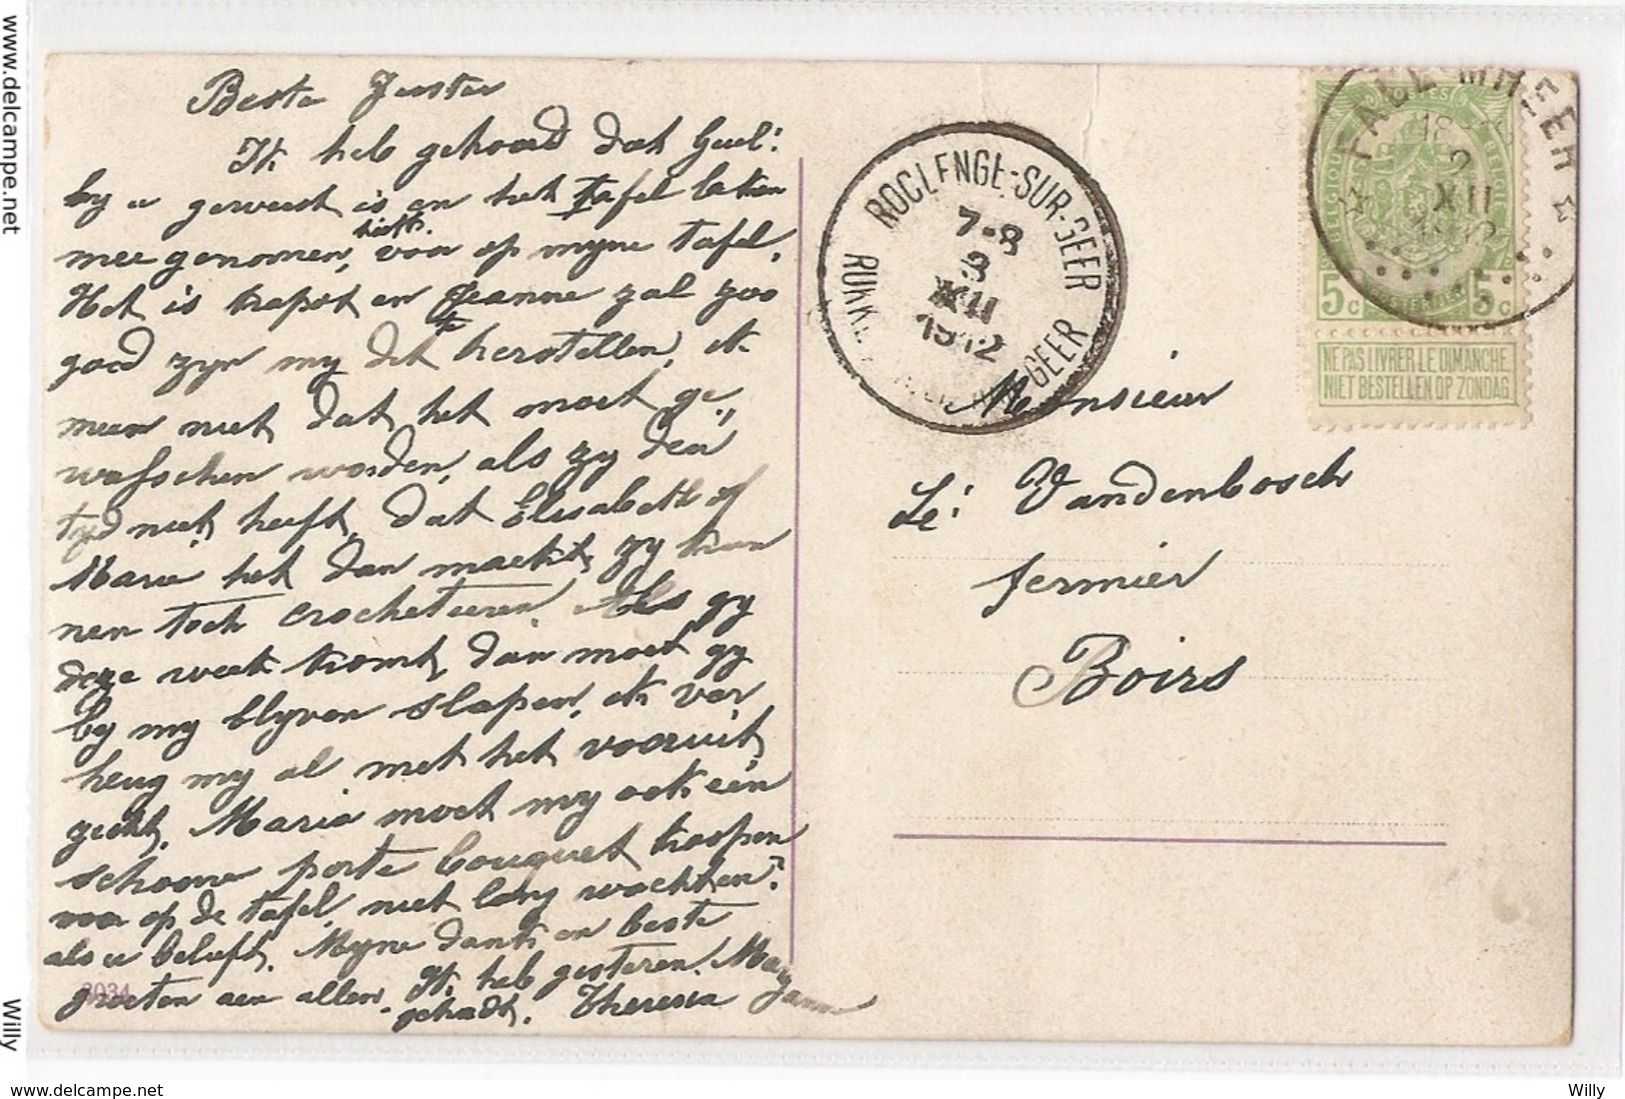 Beste Zuster
Ik heb gehoord dat Guil:
by u geweest is en het tafel laken
mee genomen, hiett. voor op myne tafel,
Het is kapot en Jeanne zal zoo
goed zyn my dit te herstellen, ik
meen niet dat het moet ge„
wasschen worden, als zy den
tyd niet heeft, dat Elisabeth of
Marie het dan maekt, zy kun
nen toch crocheteeren. Als gy
deze week komt, dan moet gy
by my blyven slapen, ik ver
heug my al met het vooruit
zicht, Maria moet my ook één
schoone porte bouquet koopen
voor op de tafel, niet lang wachten?
als u belieft. Myne dank en beste
groeten aen allen. Ik heb gisteren Maryanne
gehadt. Theresia
3034
ROCLENGE-SUR-GEER
7-8
3
XII
1912
GEER
FALL-MHEER
2
XII
POSTES
BELGIQUE
BELGIË
5c 5c
NE PAS LIVRER LE DIMANCHE
NIET BESTELLEN OP ZONDAG
Monsieur
Lé: Vandenbosch
fermier
Boirs
www.delcampe.net
Willy
www.delcampe.net
Willy